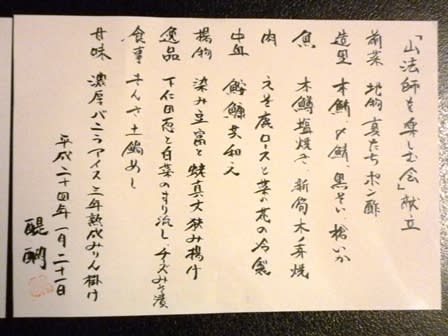 「山法師を楽しむ会」献立
前菜 地物真たちポン酢
造里 本鮪、〆鯖、黒そい、槍いか
魚 本鱒塩焼き、新筍木ノ芽焼
肉 えぞ鹿ロースと菜の花の冷製
中皿 鮟鱇友和え
揚物 染み豆富と焼真丈挟み揚げ
逸品 下仁田葱と白菜のすり流し、チーズみそ漬
食事 きんき土鍋めし
甘味 濃厚バニラアイス三年熟成みりん掛け
平成二十四年一月二十一日
醍醐